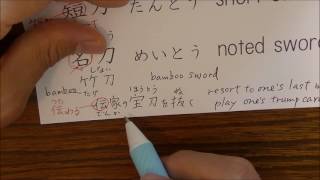 短刀 たんとう short
名刀 めいとう noted sword
しない
竹刀 bamboo sword
bamboo たけ ほうとう ぬ
伝家の宝刀を抜く resort to one's last
つた でんか
伝わる play one's trump card